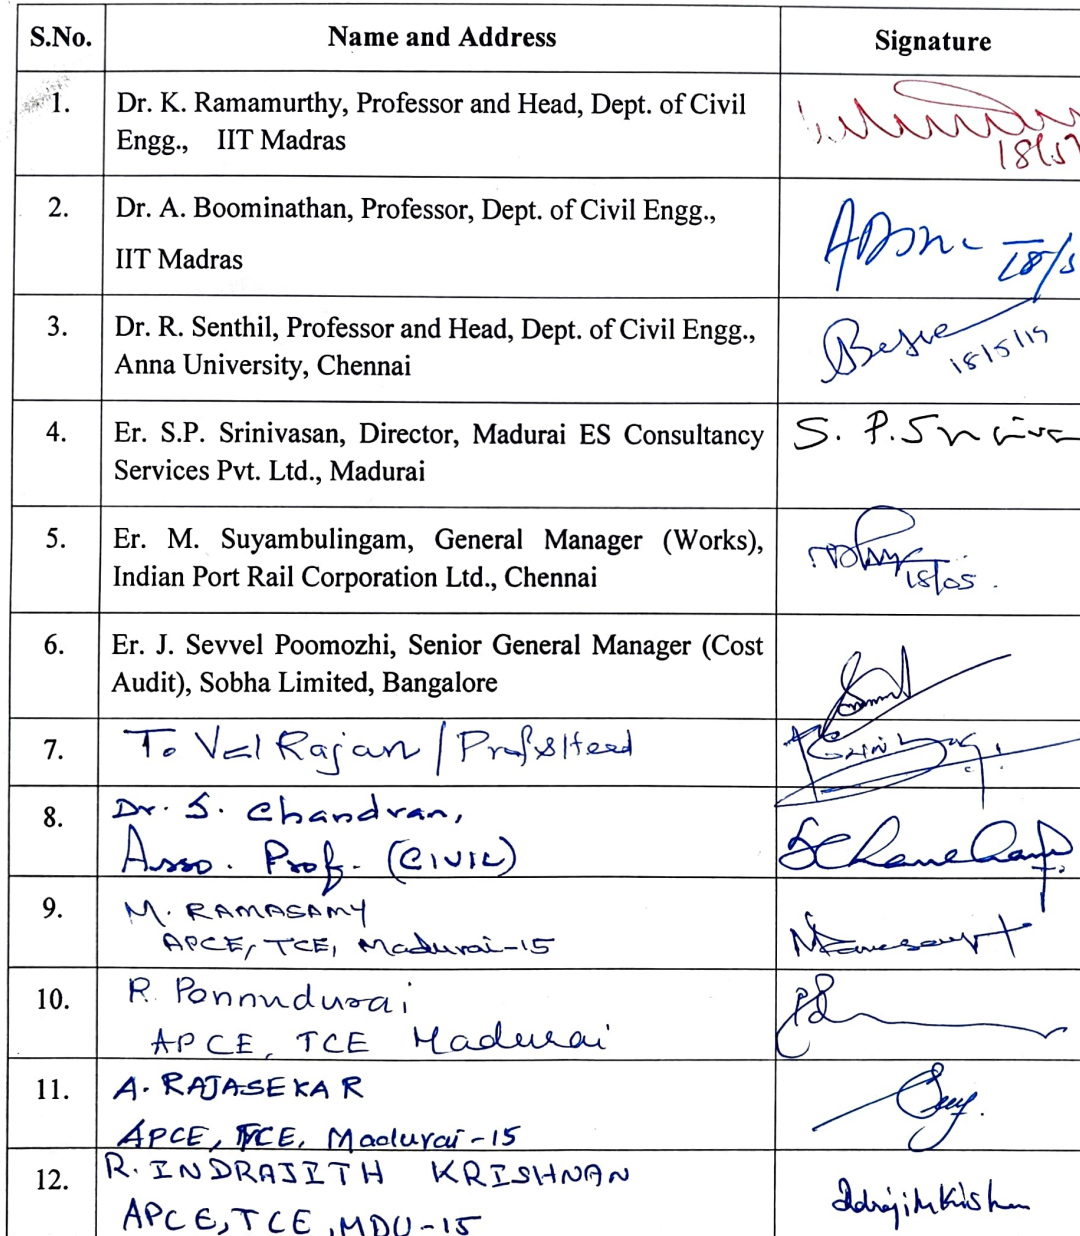 S.No. Name and Address Signature
1. Dr. K. Ramamurthy, Professor and Head, Dept. of Civil
Engg., IIT Madras
2. Dr. A. Boominathan, Professor, Dept. of Civil Engg.,
IIT Madras
3. Dr. R. Senthil, Professor and Head, Dept. of Civil Engg.,
Anna University, Chennai
18/5/19
4. Er. S.P. Srinivasan, Director, Madurai ES Consultancy S. P. Sriniva
Services Pvt. Ltd., Madurai
5. Er. M. Suyambulingam, General Manager (Works),
Indian Port Rail Corporation Ltd., Chennai 18/05.
6. Er. J. Sevvel Poomozhi, Senior General Manager (Cost
Audit), Sobha Limited, Bangalore
7. T. Vel Rajan / Prof & Head
8. Dr. S. Chandran,
Asso. Prof. (CIVIL)
9. M. RAMASAMY
APCE, TCE, Madurai-15
10. R. Ponnudurai
APCE, TCE Madurai
11. A. RAJASEKAR
APCE, TCE, Madurai-15
12. R. INDRAJITH KRISHNAN
APCE, TCE, MDU-15